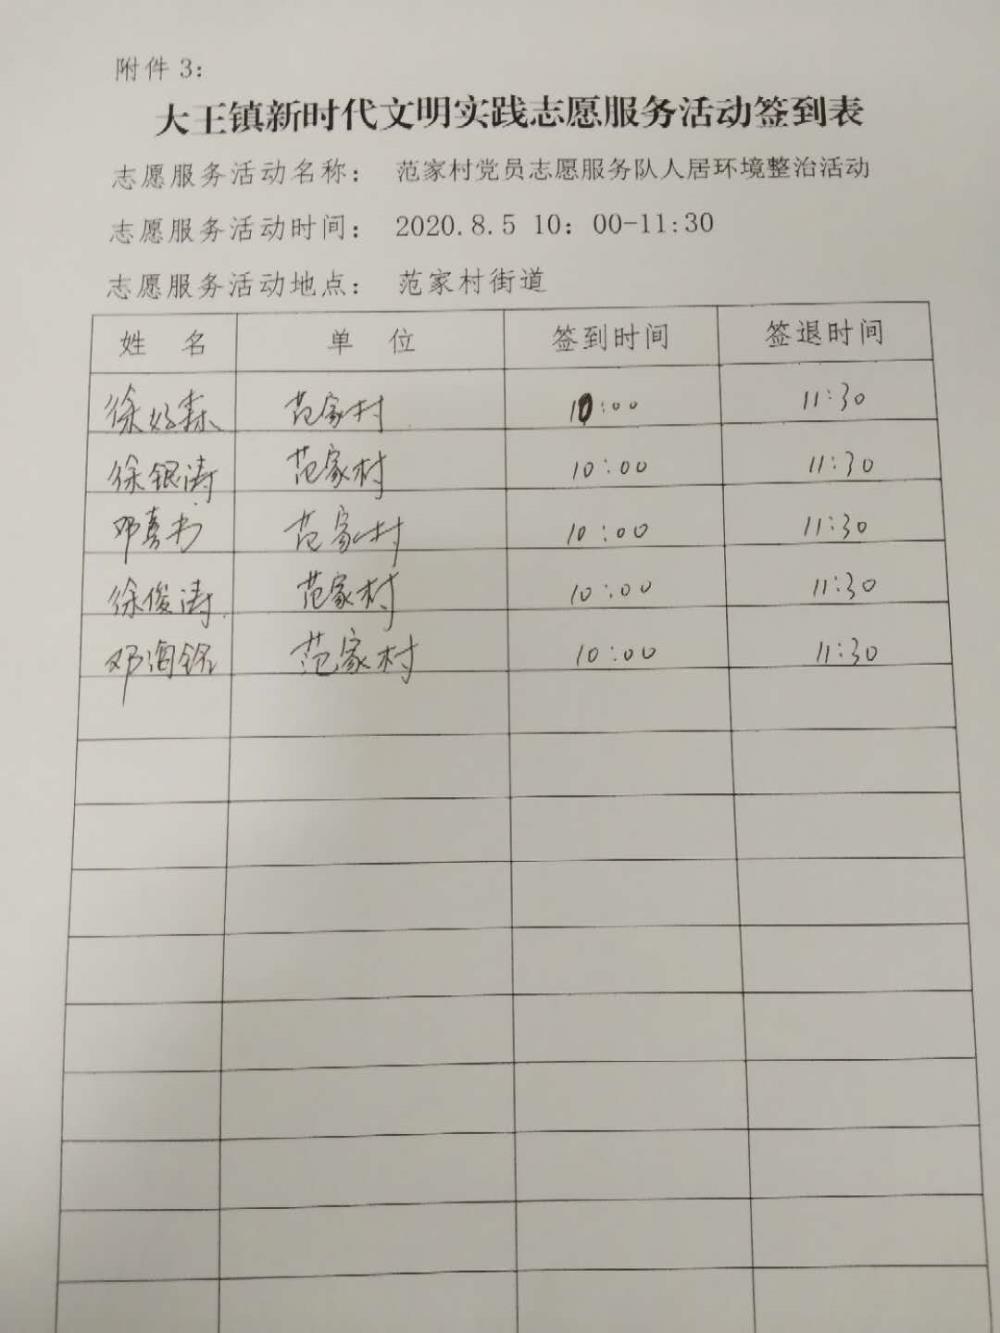 附件 3：
大王镇新时代文明实践志愿服务活动签到表
志愿服务活动名称： 范家村党员志愿服务队人居环境整治活动
志愿服务活动时间： 2020.8.5 10：00-11:30
志愿服务活动地点： 范家村街道
姓 名 单 位 签到时间 签退时间
徐好森 范家村 10:00 11:30
徐银涛 范家村 10:00 11:30
邓喜书 范家村 10:00 11:30
徐俊涛 范家村 10:00 11:30
邓海铭 范家村 10:00 11:30